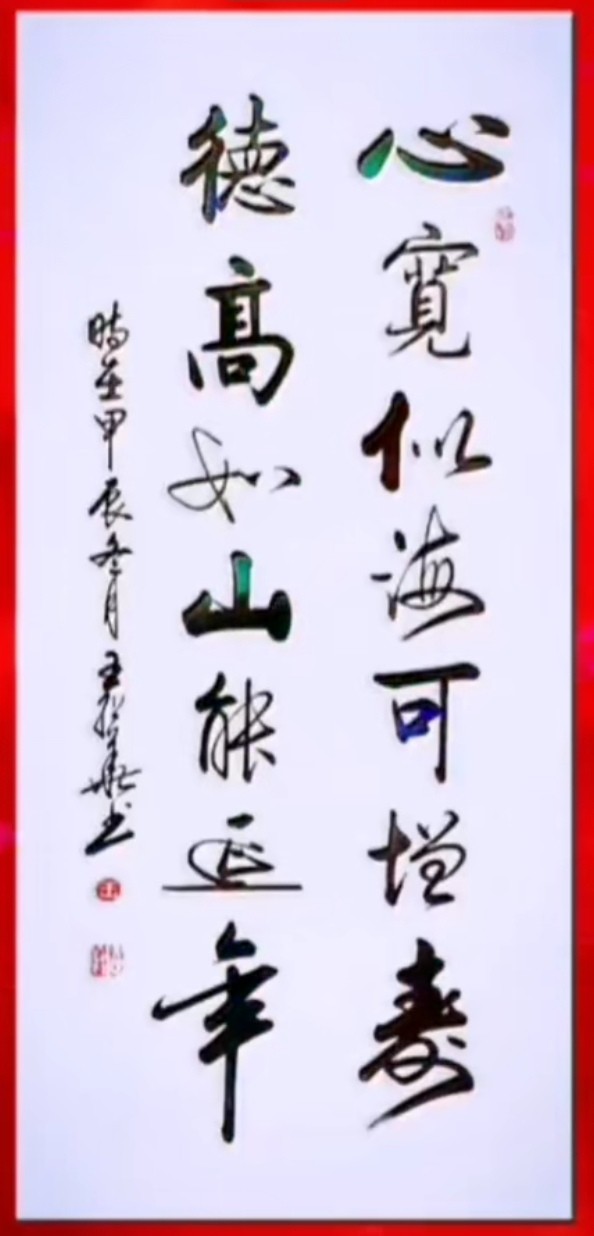 心寬似海可增壽
德高如山能延年
時在甲辰冬月王
書